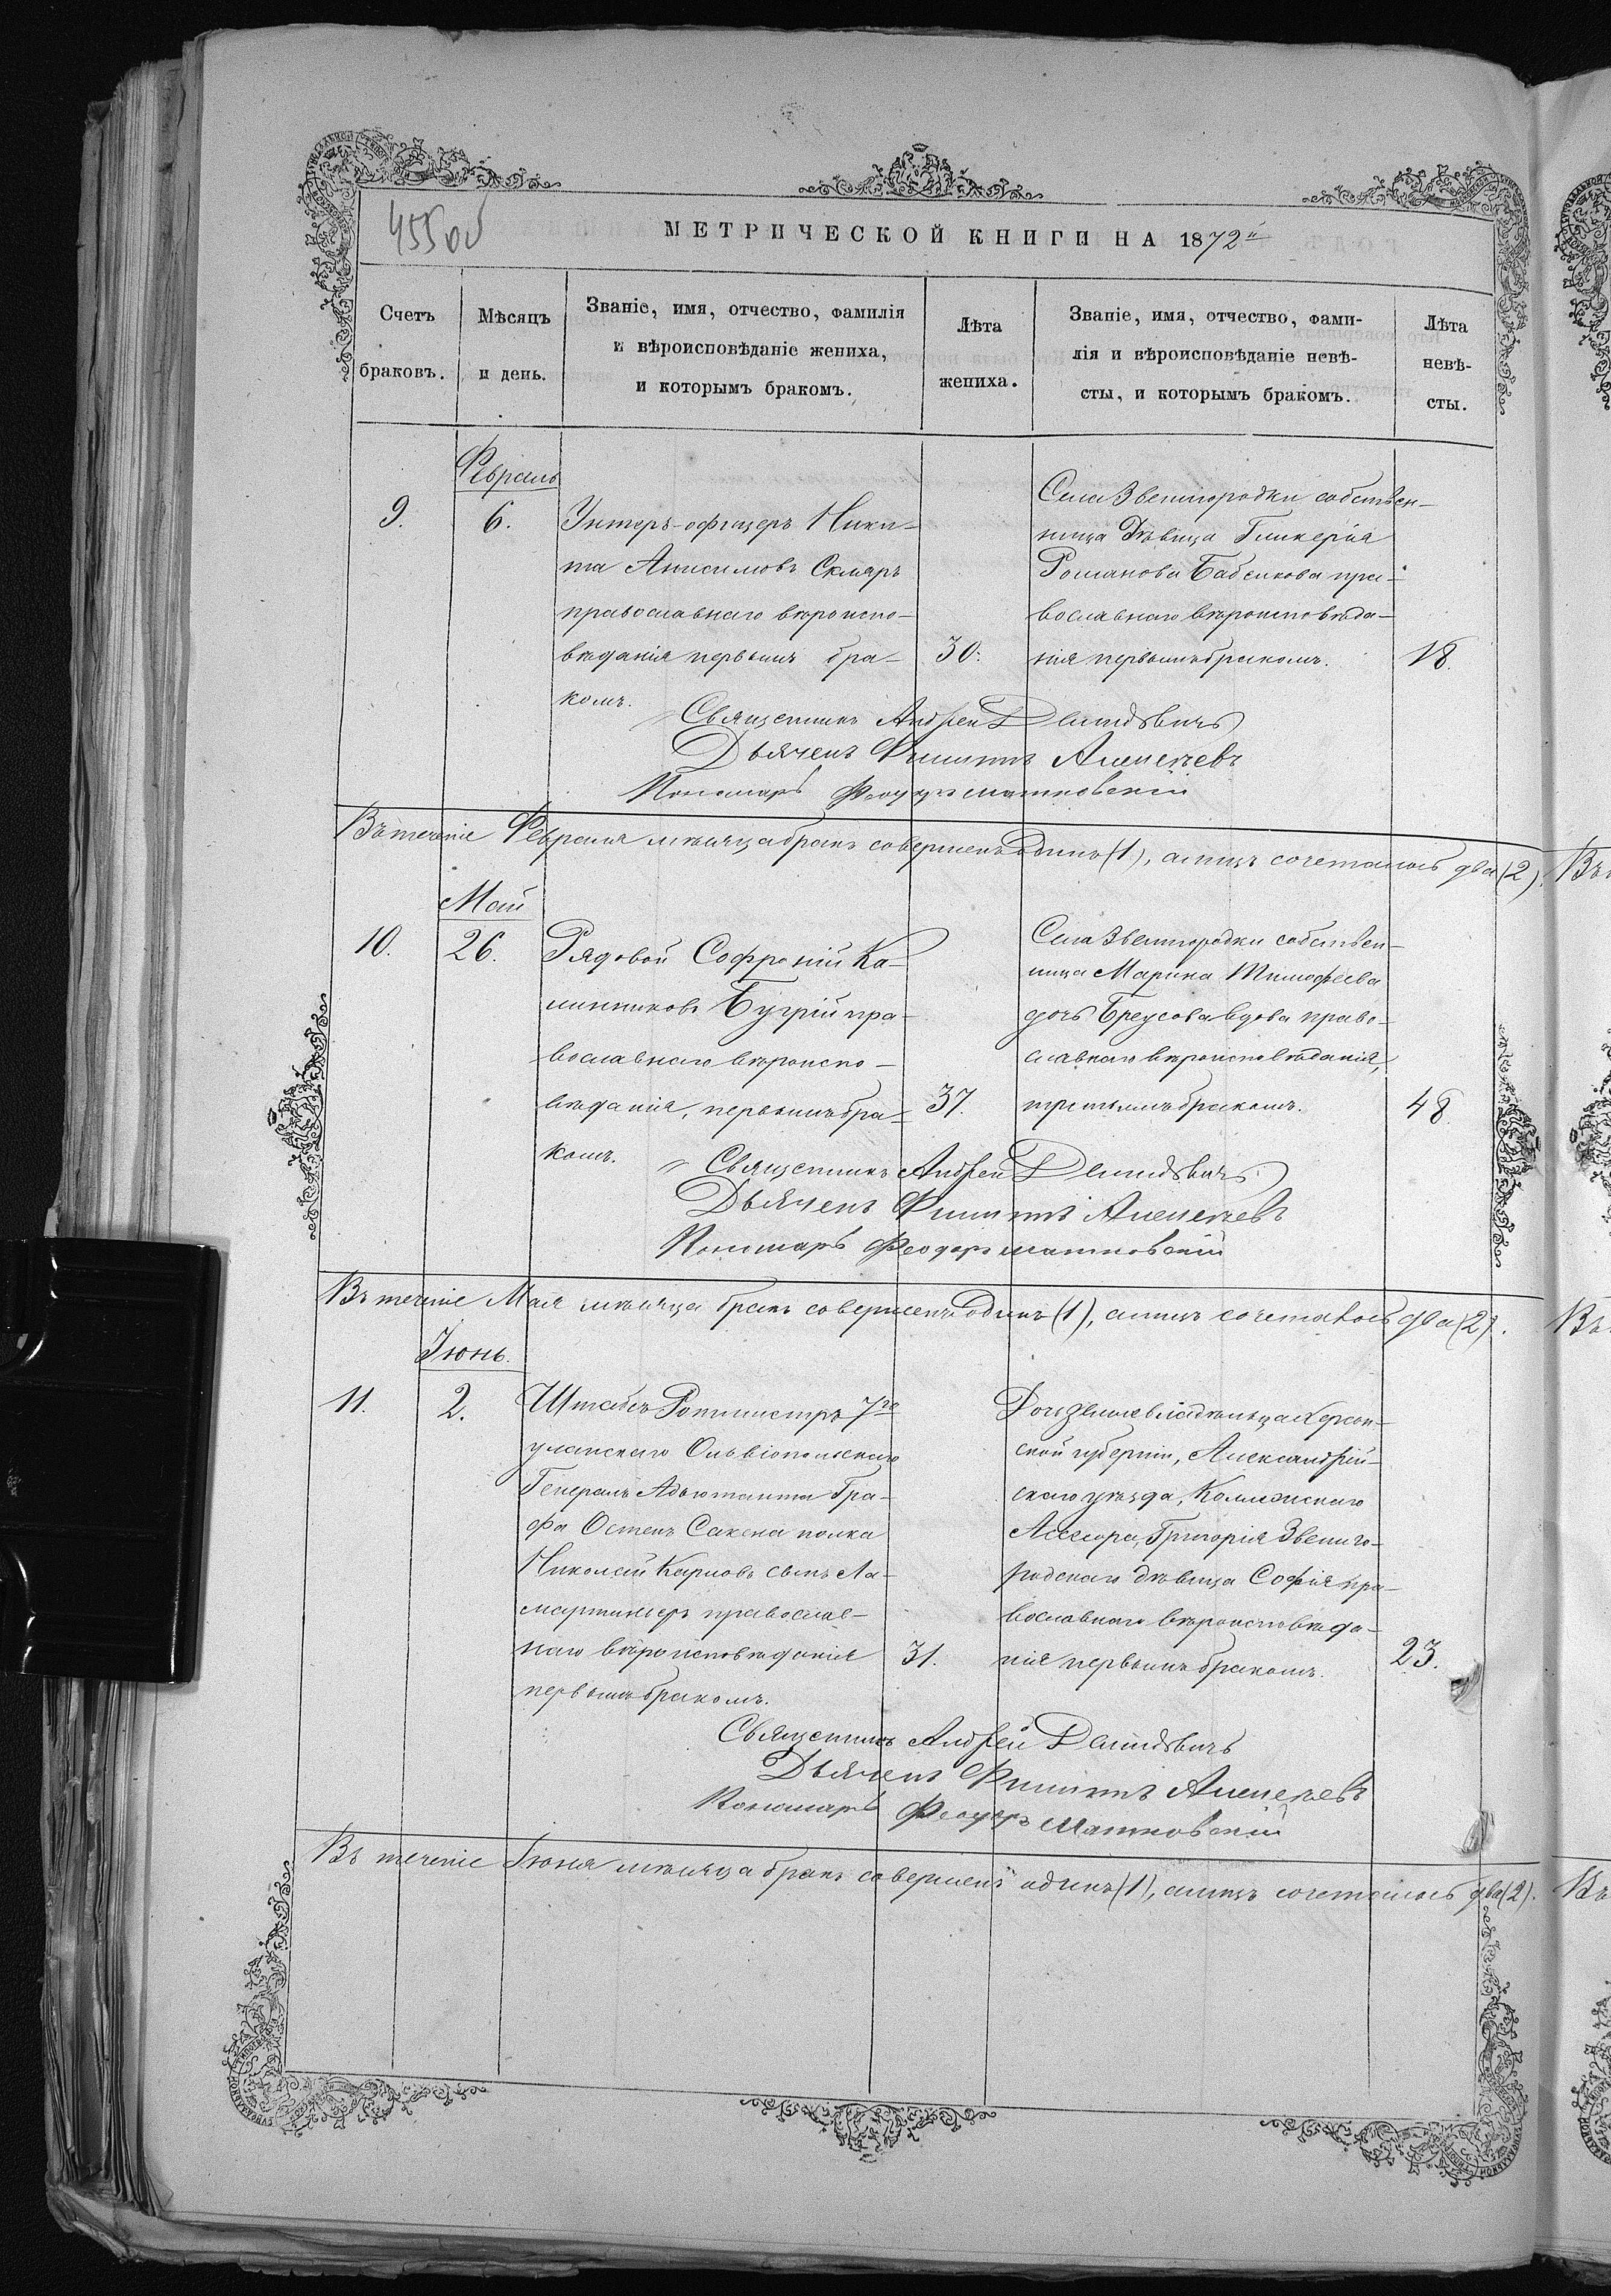 455об
МЕТРИЧЕСКОЙ КНИГИ НА 1872й
Счетъ
браковъ.
Мѣсяцъ
и день.
Званіе, имя, отчество, фамилія
и вѣроисповѣданіе жениха,
и которымъ бракомъ.
Лѣта
жениха.
Званіе, имя, отчество, фами-
лія и вѣроисповѣданіе невѣ-
сты, и которымъ бракомъ.
Лѣта
невѣ-
сты.
Февраль
9.
6.
Унтеръ-офицеръ Ники-
та Анисимовъ Скляръ
православнаго вѣроиспо-
вѣданія первымъ бра-
комъ.
30.
Села Звенигородки собствен-
ница Дѣвица Гликерія
Романова Бабенкова пра-
вославнаго вѣроисповѣда-
нія первымъ бракомъ.
18.
Священникъ Андрей Демидовичъ
Дьячекъ Филиппъ Алексѣевъ
Пономарь Феодоръ Матковскій
Въ теченіе Февраля мѣсяца бракъ совершенъ одинъ (1), а лицъ сочеталось два (2).
Май
10.
26.
Рядовой Софроній Ка-
линниковъ Бугрій пра-
вославнаго вѣроиспо-
вѣданія, первымъ бра-
комъ.
37.
Села Звенигородки собствен-
ница Марина Тимофѣева
дочь Бреусова вдова право-
славнаго вѣроисповѣданія,
третьимъ бракомъ.
48.
Священникъ Андрей Демидовичъ
Дьячекъ Филиппъ Алексѣевъ
Пономарь Феодоръ Матковскій
Въ теченіе Мая мѣсяца бракъ совершенъ одинъ (1), а лицъ сочеталось два (2).
Іюнь.
11.
2.
Штабсъ Ротмистръ 7го
уланскаго Ольвіопольскаго
Генералъ Адъютанта Гра-
фа Остенъ Сакена полка
Николай Карловъ сынъ Ла-
мартиньеръ православ-
наго вѣроисповѣданія
первымъ бракомъ.
31.
Дочь землевладѣльца Херсон-
ской губерніи, Александрій-
скаго уѣзда, Коллежскаго
Ассесора, Григорія Звениго-
родскаго дѣвица Софія пра-
вославнаго вѣроисповѣда-
нія первымъ бракомъ.
23.
Священникъ Андрей Демидовичъ
Дьячекъ Филиппъ Алексѣевъ
Пономарь Феодоръ Матковскій
Въ теченіе Іюня мѣсяца бракъ совершенъ одинъ (1), а лицъ сочеталось два (2).